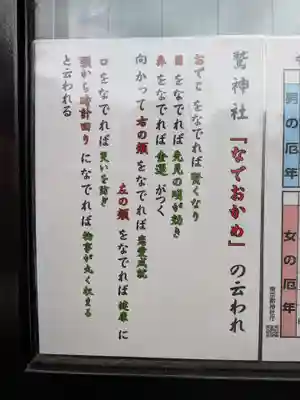 鷲神社「なでおかめ」の云われ
おでこをなでれば賢くなり
目をなでれば先見の明が効き
鼻をなでれば金運がつく
向かって右の頬をなでれば恋愛成就
左の頬をなでれば健康に
口をなでれば災いを防ぎ
顎から時計回りになでれば物事が丸く収まる
と云われる
男の厄年
女の厄年
東京都神社庁